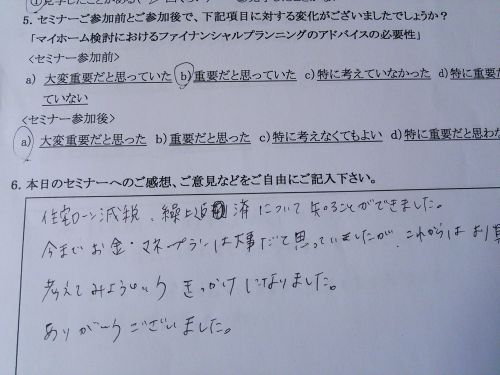 5. セミナーご参加前とご参加後で、下記項目に対する変化がございましたでしょうか?
「マイホーム検討におけるファイナンシャルプランニングのアドバイスの必要性」
<セミナー参加前>
a) 大変重要だと思っていた b)重要だと思っていた c)特に考えていなかった d)特に重要だ
ていない
<セミナー参加後>
a) 大変重要だと思った b)重要だと思った c)特に考えなくてもよい d)特に重要だと思わな
6. 本日のセミナーへのご感想、ご意見などをご自由にご記入下さい。
住宅ローン減税、繰上返済について知ることができました。
今までお金・マネープランは大事だと思っていましたが、これからはより真
考えてみようという きっかけになりました。
ありがとうございました。